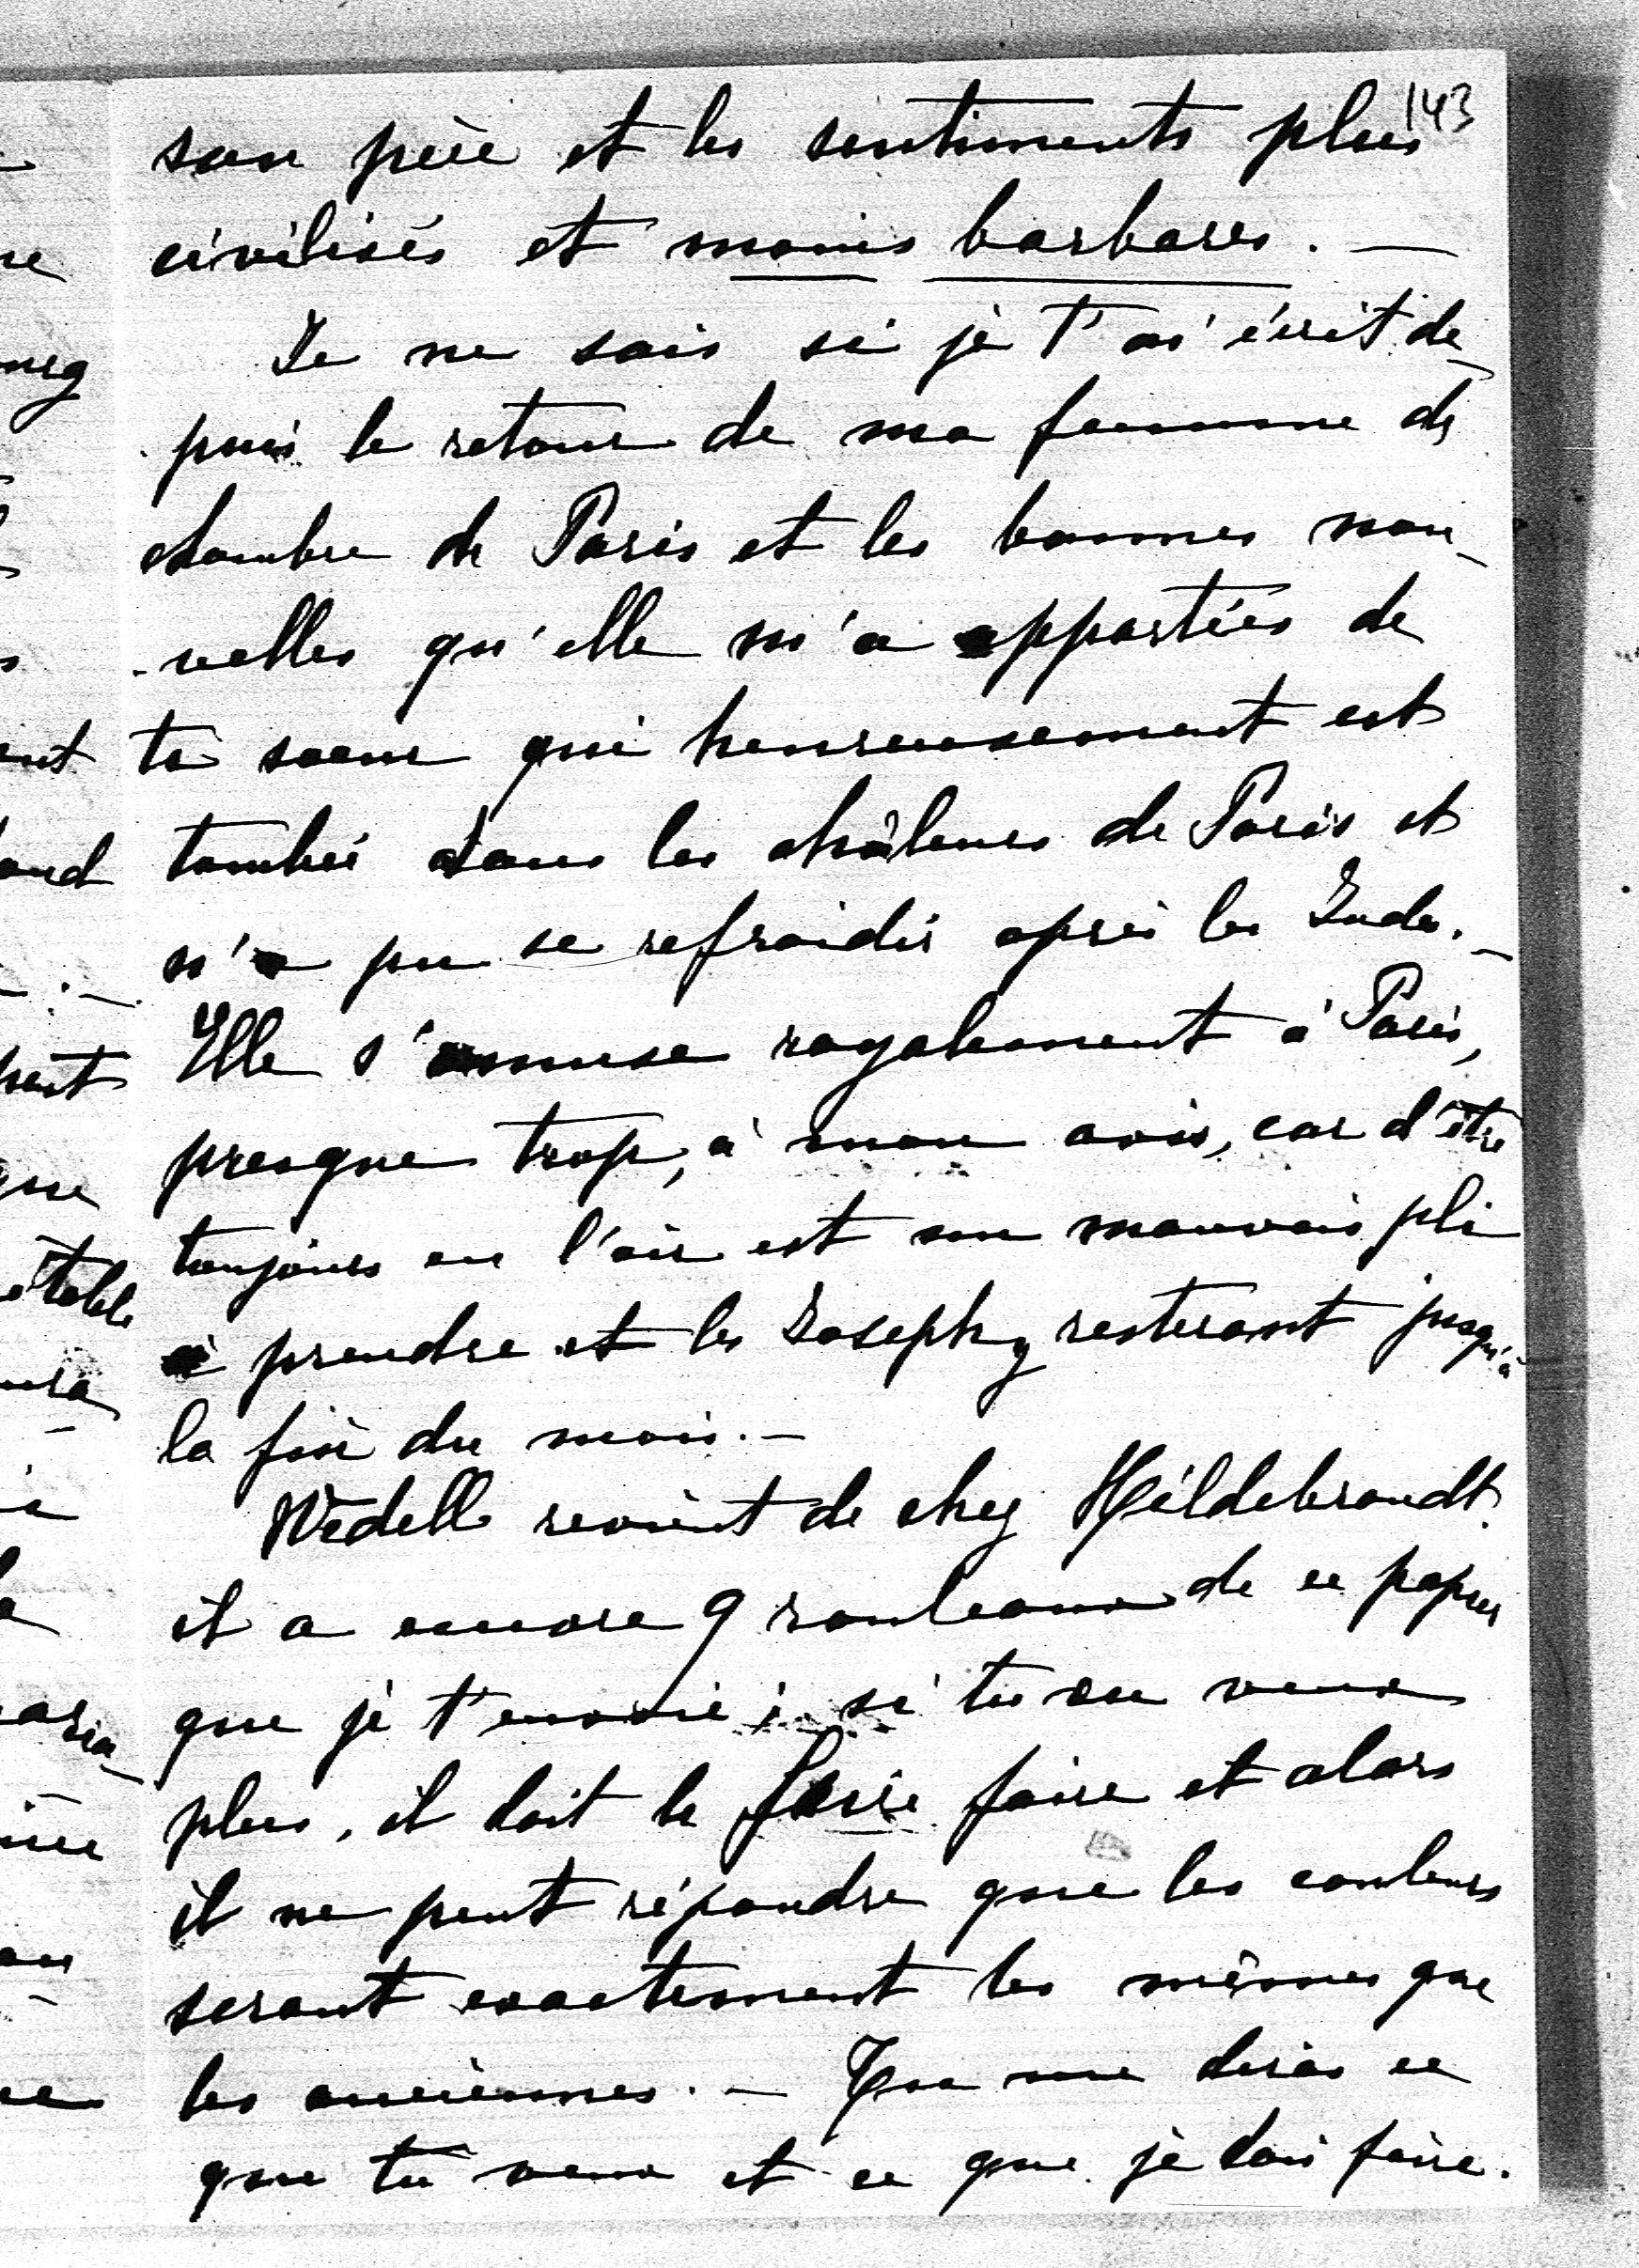 143
son père et les sentiments plus
civilisés et moins barbares. —
Je ne sais si je t'ai écrit de-
puis le retour de ma femme de
chambre de Paris et les bonnes nou-
-velles qu'elle m'a apportées de
ta soeur qui heureusement est
tombée dans les chaleurs de Paris et
n'a pu se refroidir après les Indes. —
Elle s'amuse royalement à Paris,
presque trop, à mon avis, car d'être
toujours en l'air est un mauvais pli
à prendre et les Josephy resteront jusqu'à
la fin du mois. —
Wedell revient de chez Hildebrandt.
il a encore 9 rouleaux de ce papier
que je t'envoie; si tu en veux
plus, il doit le faire faire et alors
il ne peut répondre que les couleurs
seront exactement les mêmes que
les anciennes. — Tu me diras ce
que tu veux et ce que je dois faire.